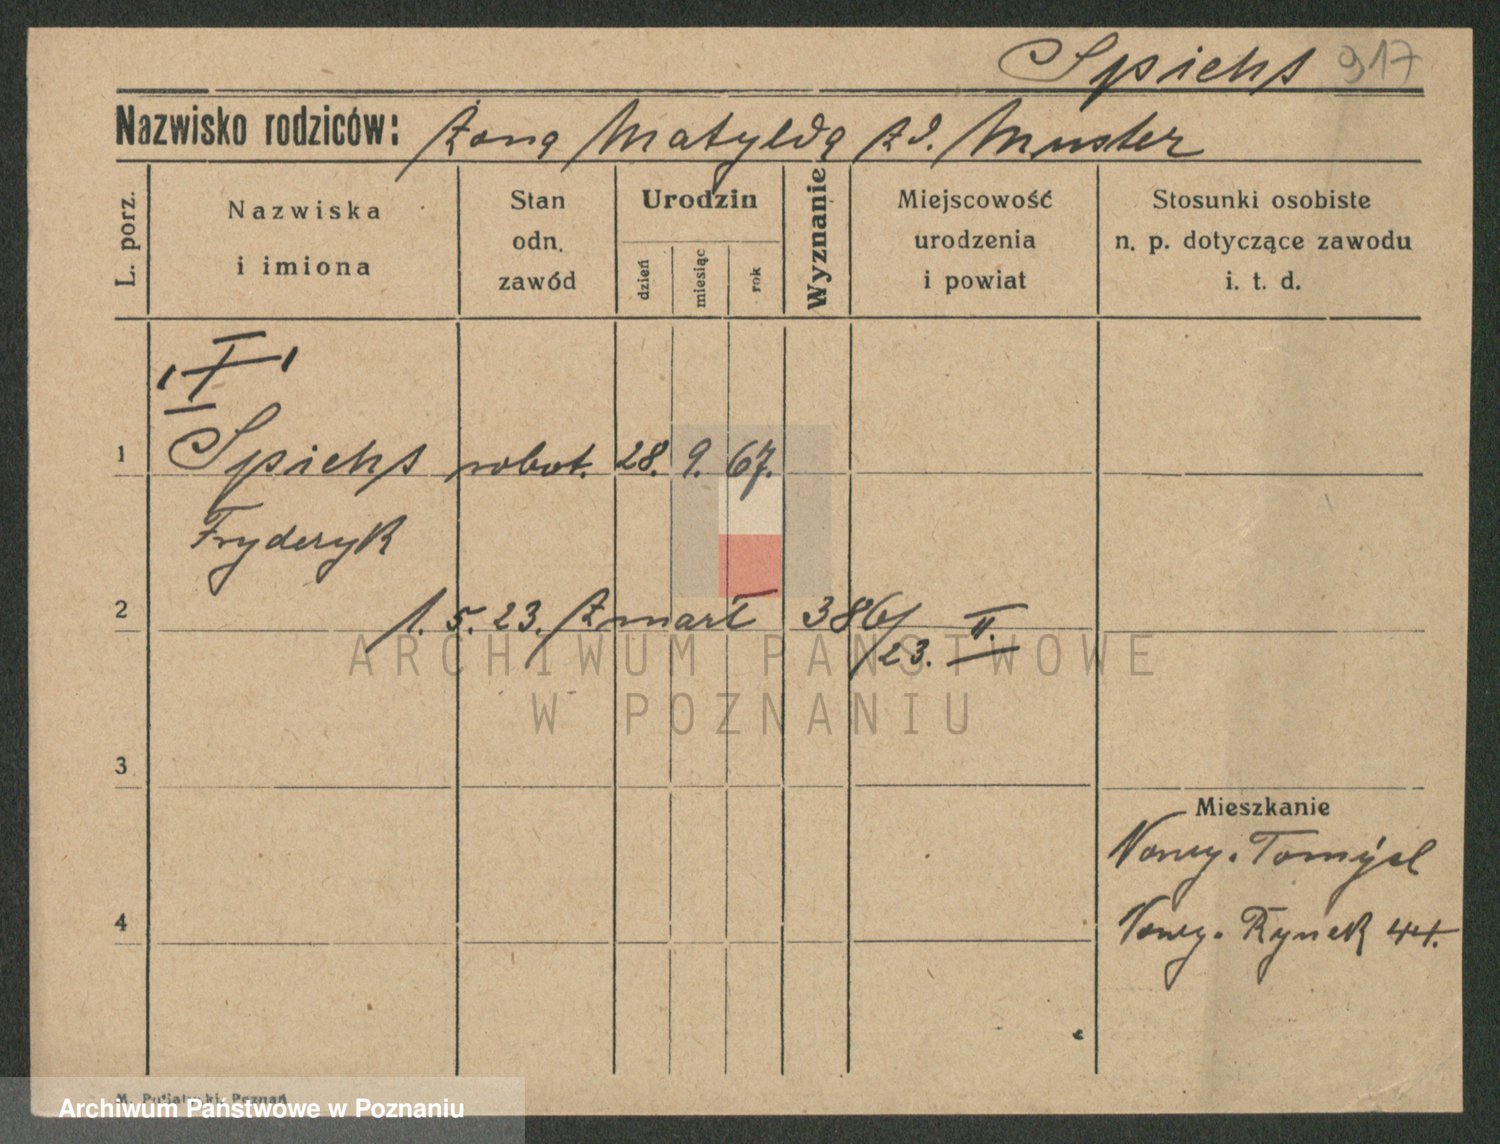 Spichs 917
Nazwisko rodziców: żona Matylda zd. Muster
L. porz.
Nazwiska
i imiona
Stan
odn.
zawód
Urodzin
dzień
miesiąc
rok
Wyznanie
Miejscowość
urodzenia
i powiat
Stosunki osobiste
n. p. dotyczące zawodu
i. t. d.
1 Spichs robot. 28. 9. 67.
Fryderyk
2 1. 5. 23. Zmarł 386/
/23. II.
ARCHIWUM PAŃSTWOWE
W POZNANIU
3
Mieszkanie
Nowy-Tomýsl
4 Nowy-Rynek 44.
Poznań
Archiwum Państwowe w Poznaniu